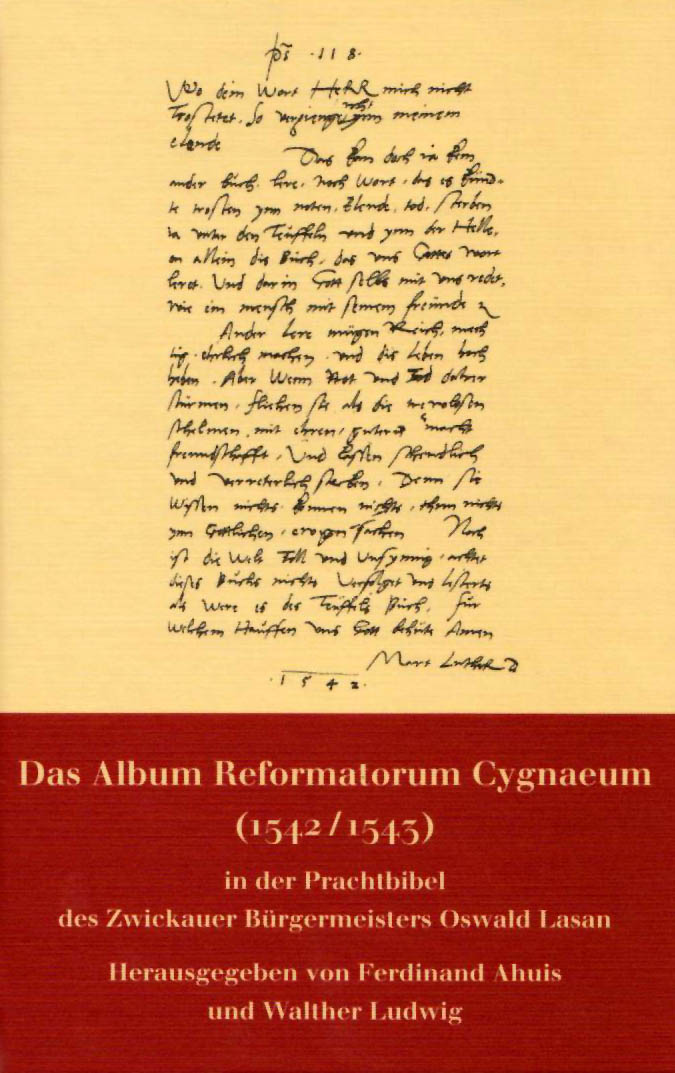 ps .118.
Wo dein Wort HeRR mich nicht
Trostetet, So vergienge ich ynn meinem
elende
Das kan doch ia kein
ander buch, lere, noch Wort, das es künd-
te trosten ynn noten, Elende, tod, sterben
ia unter den Teuffeln und ynn der Helle,
on allein dis Buch, das uns Gottes wort
leret. Und darin Gott selbs mit uns redet,
wie ein mensch mit seinem freunde
Ander lere mügen Reich, mech
tig, ehrlich machen, und dis leben hoch
heben. Aber Wenn Not und Tod daher
stürmen, fliehen sie als die
schelmen, mit ehren, guter macht
freundschafft, Und lassen schendlich
und verreterlich stecken, Denn sie
Wissen nichts, konnen nichts, thun nichts
ynn Gottlichen, ewigen sachen Noch
ist die Welt Toll und Unsynnig, achtet
dieses Buchs nichts Verfolget und lesterts
als were es des Teuffels Buch, Fur
welchem Hauffen uns Gott behüte Amen
Mart Luther D
.1542.
Das Album Reformatorum Cygnaeum
(1542/1543)
in der Prachtbibel
des Zwickauer Bürgermeisters Oswald Lasan
Herausgegeben von Ferdinand Ahuis
und Walther Ludwig